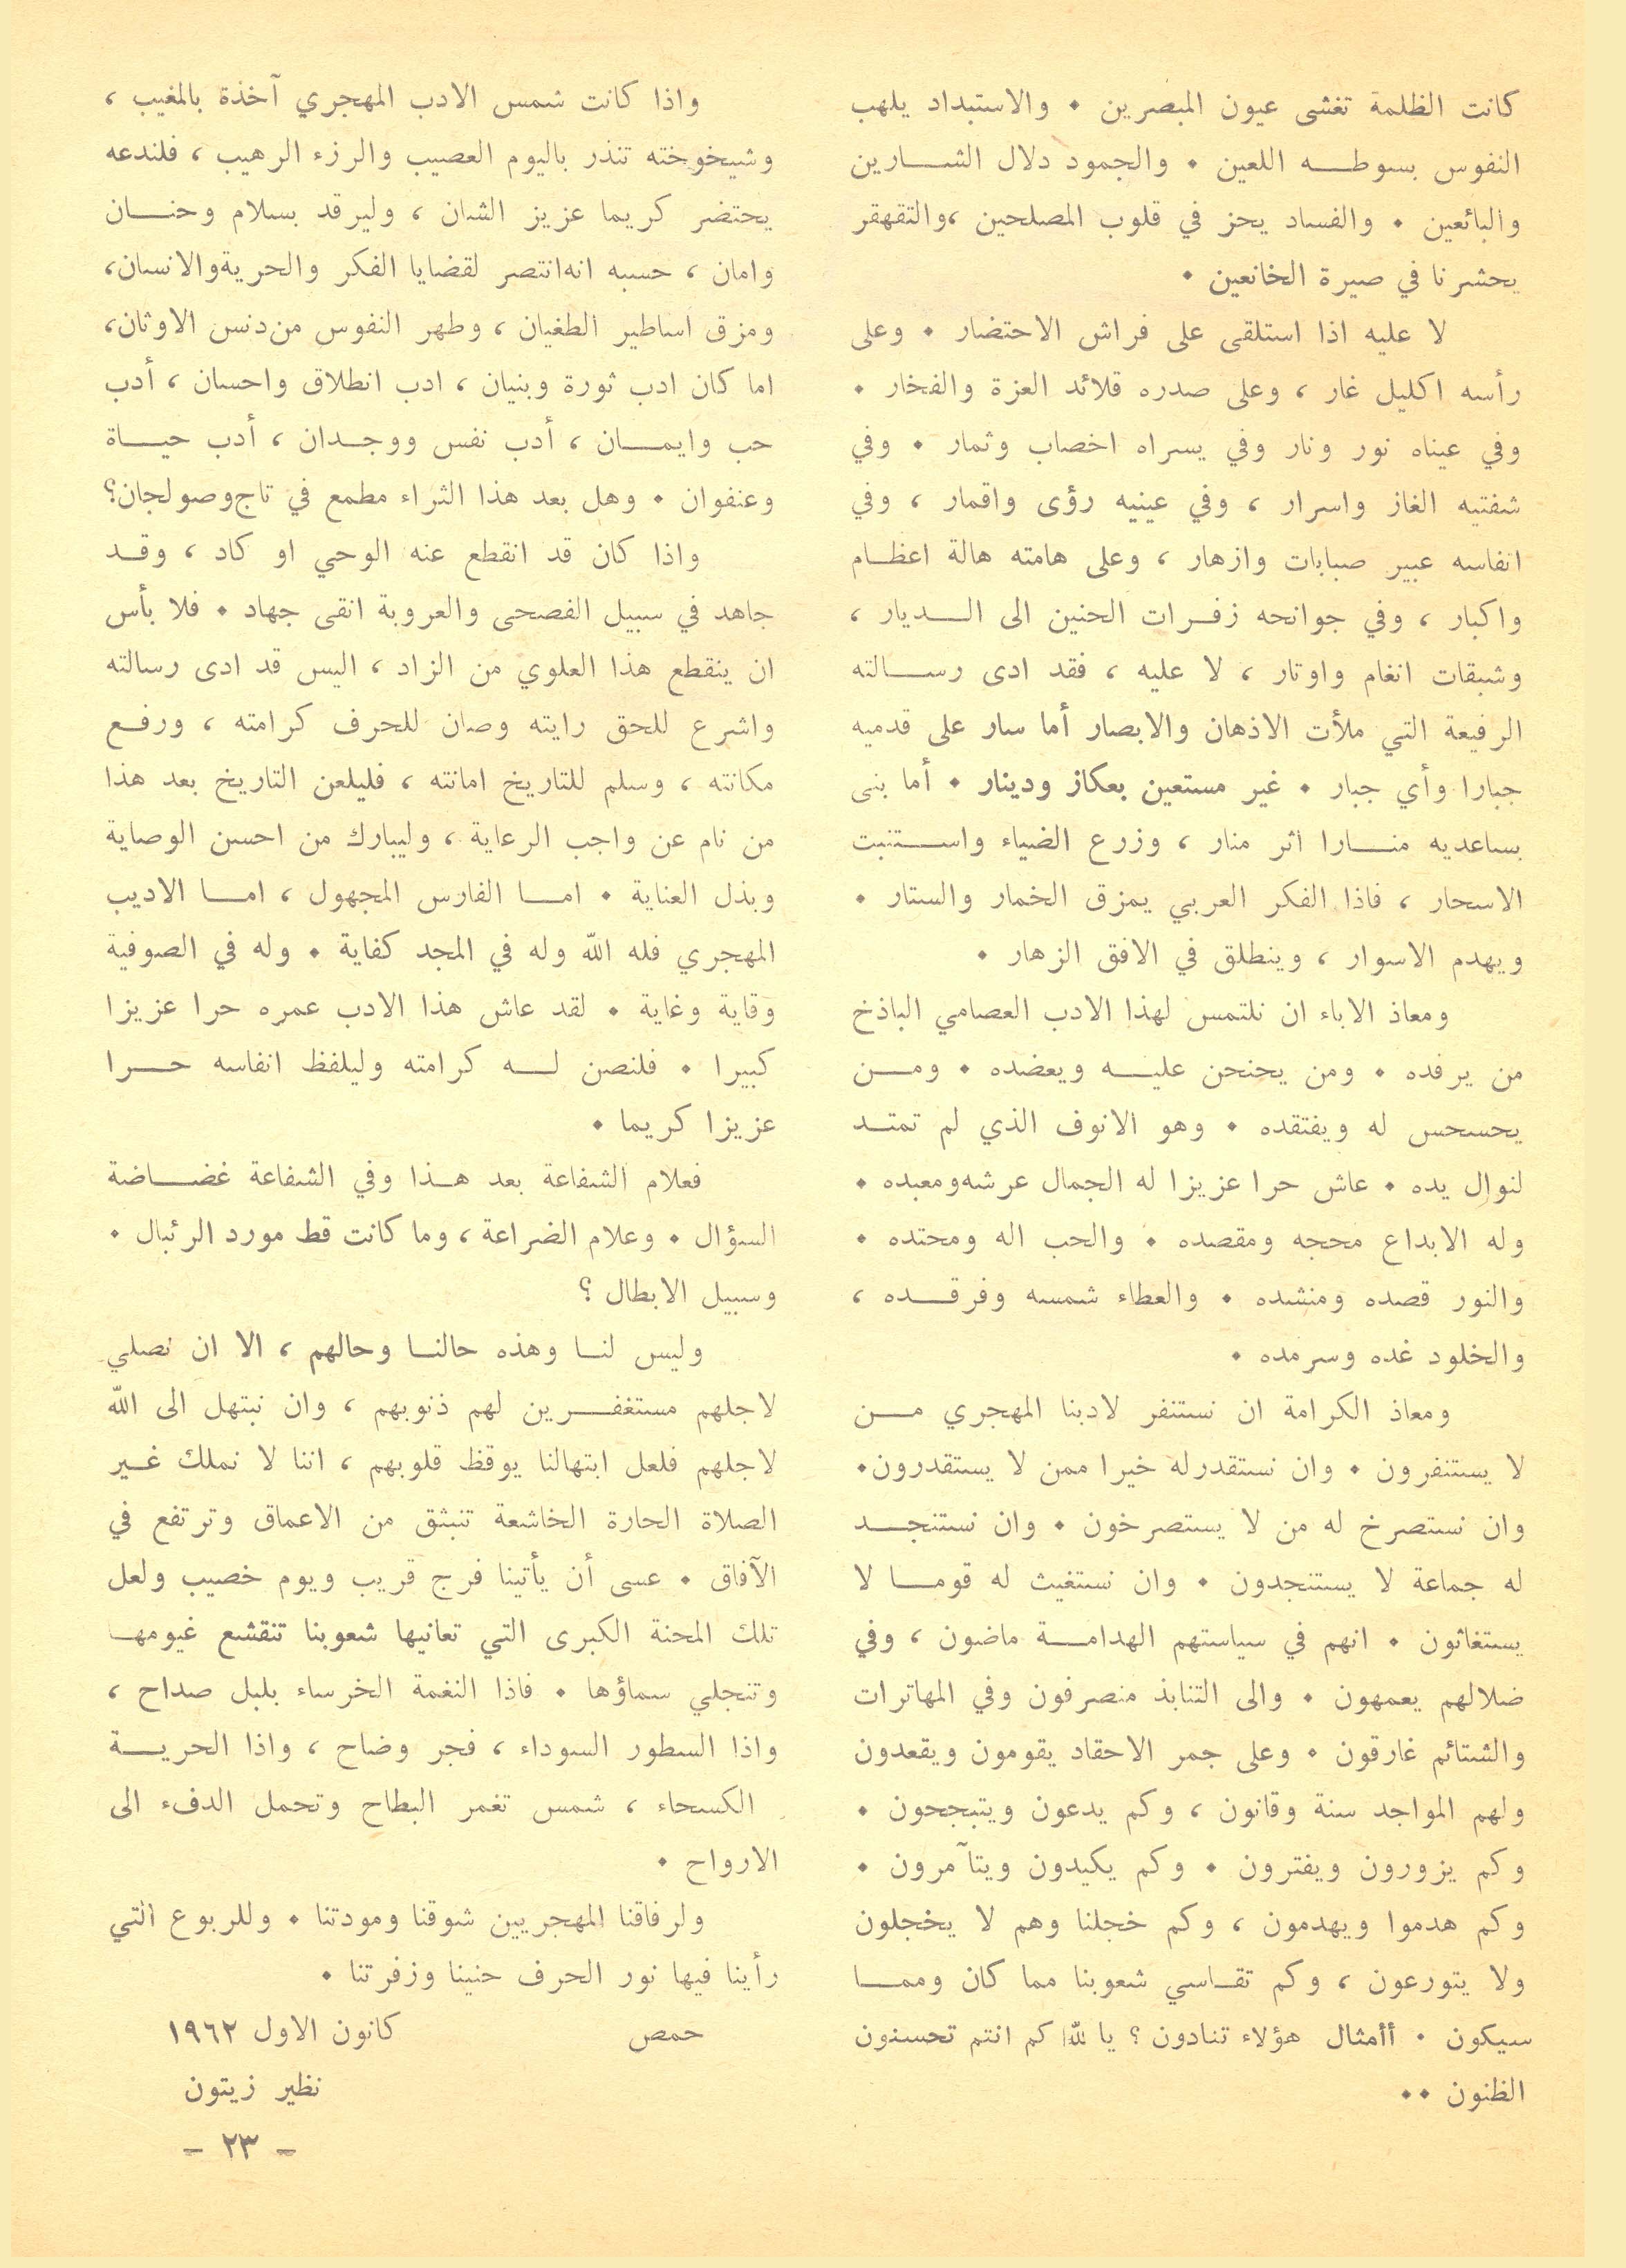 كانت الظلمة تغشى عيون المبصرين ٠ والاستبداد يلهب
النفوس بسوطه اللعين ٠ والجمود دلال الشارين
والبائعين ٠ والفساد يحز في قلوب المصلحين ،والتقهقر
يحشرنا في صيرة الخانعين ٠
لا عليه اذا استلقى على فراش الاحتضار ٠ وعلى
رأسه اكليل غار ، وعلى صدره قلائد العزة والفخار ٠
وفي عيناه نور ونار وفي يسراه اخصاب وثمار ٠ وفي
شفتيه الغاز واسرار ، وفي عينيه رؤى واقمار ، وفي
انفاسه عبير صبابات وازهار ، وعلى هامته هالة اعظام
واكبار ، وفي جوانحه زفرات الحنين الى الديار ،
وشبقات انغام واوتار ، لا عليه ، فقد ادى رسالته
الرفيعة التي ملأت الاذهان والابصار أما سار على قدميه
جبارا وأي جبار ٠ غير مستعين بعكاز ودينار ٠ أما بنى
بساعديه منارا اثر منار ، وزرع الضياء واستنبت
الاسحار ، فاذا الفكر العربي يمزق الخمار والستار ٠
ويهدم الاسوار ، وينطلق في الافق الزهار ٠
ومعاذ الاباء ان نلتمس لهذا الادب العصامي الباذخ
من يرفده ٠ ومن يحنحن عليه ويعضده ٠ ومن
يحسحس له ويفتقده ٠ وهو الانوف الذي لم تمتد
لنوال يده ٠ عاش حرا عزيزا له الجمال عرشه ومعبده ٠
وله الابداع محجه ومقصده ٠ والحب اله ومحتده ٠
والنور قصده ومنشده ٠ والعطاء شمسه وفرقده ،
والخلود غده وسرمده ٠
ومعاذ الكرامة ان نستنفر لادبنا المهجري من
لا يستنفرون ٠ وان نستقدر له خيرا ممن لا يستقدرون٠
وان نستصرخ له من لا يستصرخون ٠ وان نستنجد
له جماعة لا يستنجدون ٠ وان نستغيث له قوما لا
يستغاثون ٠ انهم في سياستهم الهدامة ماضون ، وفي
ضلالهم يعمهون ٠ والى التنابذ منصرفون وفي المهاترات
والشتائم غارقون ٠ وعلى جمر الاحقاد يقومون ويقعدون
ولهم المواجد سنة وقانون ، وكم يدعون ويتبجحون ٠
وكم يزورون ويفترون ٠ وكم يكيدون ويتآمرون ٠
وكم هدموا ويهدمون ، وكم خجلنا وهم لا يخجلون
ولا يتورعون ، وكم تقاسي شعوبنا مما كان ومما
سيكون ٠ أأمثال هؤلاء تنادون ؟ يا لله كم انتم تحسنون
الظنون ٠٠
واذا كانت شمس الادب المهجري آخذة بالمغيب ،
وشيخوخته تنذر باليوم العصيب والرزء الرهيب ، فلندعه
يحتضر كريما عزيز الشان ، وليرقد بسلام وحنان
وامان ، حسبه انه انتصر لقضايا الفكر والحرية والانسان،
ومزق اساطير الطغيان ، وطهر النفوس من دنس الاوثان،
اما كان ادب ثورة وبنيان ، ادب انطلاق واحسان ، أدب
حب وايمان ، أدب نفس ووجدان ، أدب حياة
وعنفوان ٠ وهل بعد هذا الثراء مطمع في تاج وصولجان؟
واذا كان قد انقطع عنه الوحي او كاد ، وقد
جاهد في سبيل الفصحى والعروبة انقى جهاد ٠ فلا بأس
ان ينقطع هذا العلوي من الزاد ، اليس قد ادى رسالته
واشرع للحق رايته وصان للحرف كرامته ، ورفع
مكانته ، وسلم للتاريخ امانته ، فليلعن التاريخ بعد هذا
من نام عن واجب الرعاية ، وليبارك من احسن الوصاية
وبذل العناية ٠ اما الفارس المجهول ، اما الاديب
المهجري فله الله وله في المجد كفاية ٠ وله في الصوفية
وقاية وغاية ٠ لقد عاش هذا الادب عمره حرا عزيزا
كبيرا ٠ فلنصن له كرامته وليلفظ انفاسه حرا
عزيزا كريما ٠
فعلام الشفاعة بعد هذا وفي الشفاعة غضاضة
السؤال ٠ وعلام الضراعة ، وما كانت قط مورد الرئبال ٠
وسبيل الابطال ؟
وليس لنا وهذه حالنا وحالهم ، الا ان نصلي
لاجلهم مستغفرين لهم ذنوبهم ، وان نبتهل الى الله
لاجلهم فلعل ابتهالنا يوقظ قلوبهم ، اننا لا نملك غير
الصلاة الحارة الخاشعة تنبثق من الاعماق وترتفع في
الآفاق ٠ عسى أن يأتينا فرج قريب ويوم خصيب ولعل
تلك المحنة الكبرى التي تعانيها شعوبنا تنقشع غيومها
وتنجلي سماؤها ٠ فاذا النغمة الخرساء بلبل صداح ،
واذا السطور السوداء ، فجر وضاح ، واذا الحرية
الكسحاء ، شمس تغمر البطاح وتحمل الدفء الى
الارواح ٠
ولرفاقنا المهجريين شوقنا ومودتنا ٠ وللربوع التي
رأينا فيها نور الحرف حنينا وزفرتنا ٠
حمص كانون الاول ١٩٦٢
نظير زيتون
- ٢٣ -